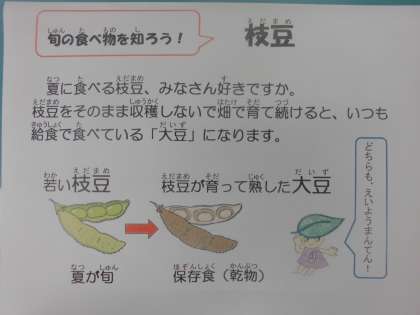 旬の食べ物を知ろう！
枝豆
夏に食べる枝豆、みなさん好きですか。
枝豆をそのまま収穫しないで畑で育て続けると、いつも
給食で食べている「大豆」になります。
若い枝豆
枝豆が育って熟した大豆
夏が旬
保存食（乾物）
どちらも、えいようまんてん！